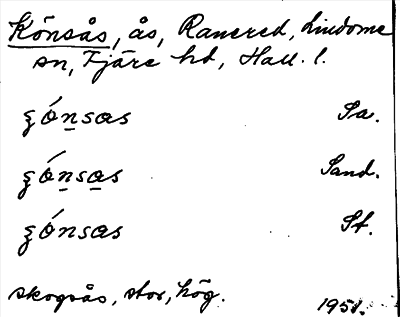 Könsås, ås, Ranered, Lindome
sn, Fjäre hd, Hall. l.
ʒónsas Sa.
ʒónsas Sand.
ʒónsas St.
skogsås, stor, hög. 1951.